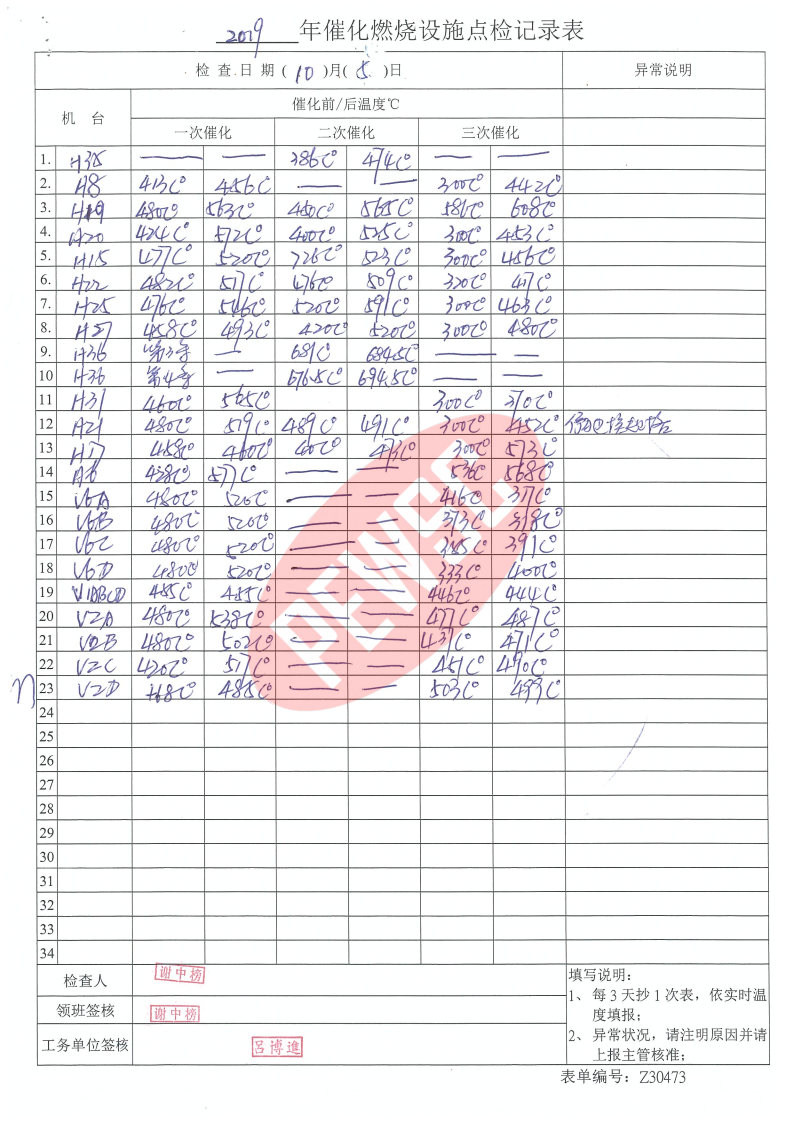 2019 年催化燃烧设施点检记录表
检 查 日 期 ( 10 )月( 5 )日 异常说明
机 台 催化前/后温度℃
一次催化 二次催化 三次催化
1. H35 — — 386℃ 474℃ — —
2. A8 413℃ 456℃ — — 300℃ 442℃
3. H19 480℃ 563℃ 450℃ 565℃ 586℃ 608℃
4. A20 424℃ 572℃ 400℃ 525℃ 300℃ 453℃
5. H15 477℃ 520℃ 726℃ 523℃ 300℃ 456℃
6. H22 482℃ 517℃ 476℃ 509℃ 320℃ 417℃
7. H25 476℃ 546℃ 520℃ 591℃ 300℃ 463℃
8. H27 458℃ 493℃ 420℃ 520℃ 300℃ 480℃
9. H36 第3季 — 681℃ 684.5℃ — —
10 H36 第4季 — 676.5℃ 694.5℃ — —
11 H31 460℃ 565℃ 300℃ 370℃
12 A21 480℃ 519℃ 489℃ 491℃ 300℃ 452℃
13 H17 458℃ 460℃ 473℃ 300℃ 573℃
14 A6 428℃ 577℃ — — 536℃ 568℃
15 V6A 480℃ 520℃ — — 416℃ 317℃
16 V6B 480℃ 520℃ — — 373℃ 378℃
17 V6C 480℃ 520℃ — — 385℃ 391℃
18 V6D 480℃ 520℃ — — 333℃ 400℃
19 V1ABCD 485℃ 485℃ — — 446℃ 444℃
20 V2A 480℃ 538℃ — — 477℃ 487℃
21 V2B 480℃ 502℃ — — 437℃ 471℃
22 V2C 420℃ 517℃ — — 451℃ 490℃
23 V2D 468℃ 485℃ — — 503℃ 499℃
24
25
26
27
28
29
30
31
32
33
34
PEWSC
检查人 谢中榜
领班签核 谢中榜
工务单位签核 吕博進
填写说明:
1、每 3 天抄 1 次表，依实时温
度填报;
2、异常状况，请注明原因并请
上报主管核准;
表单编号：Z30473